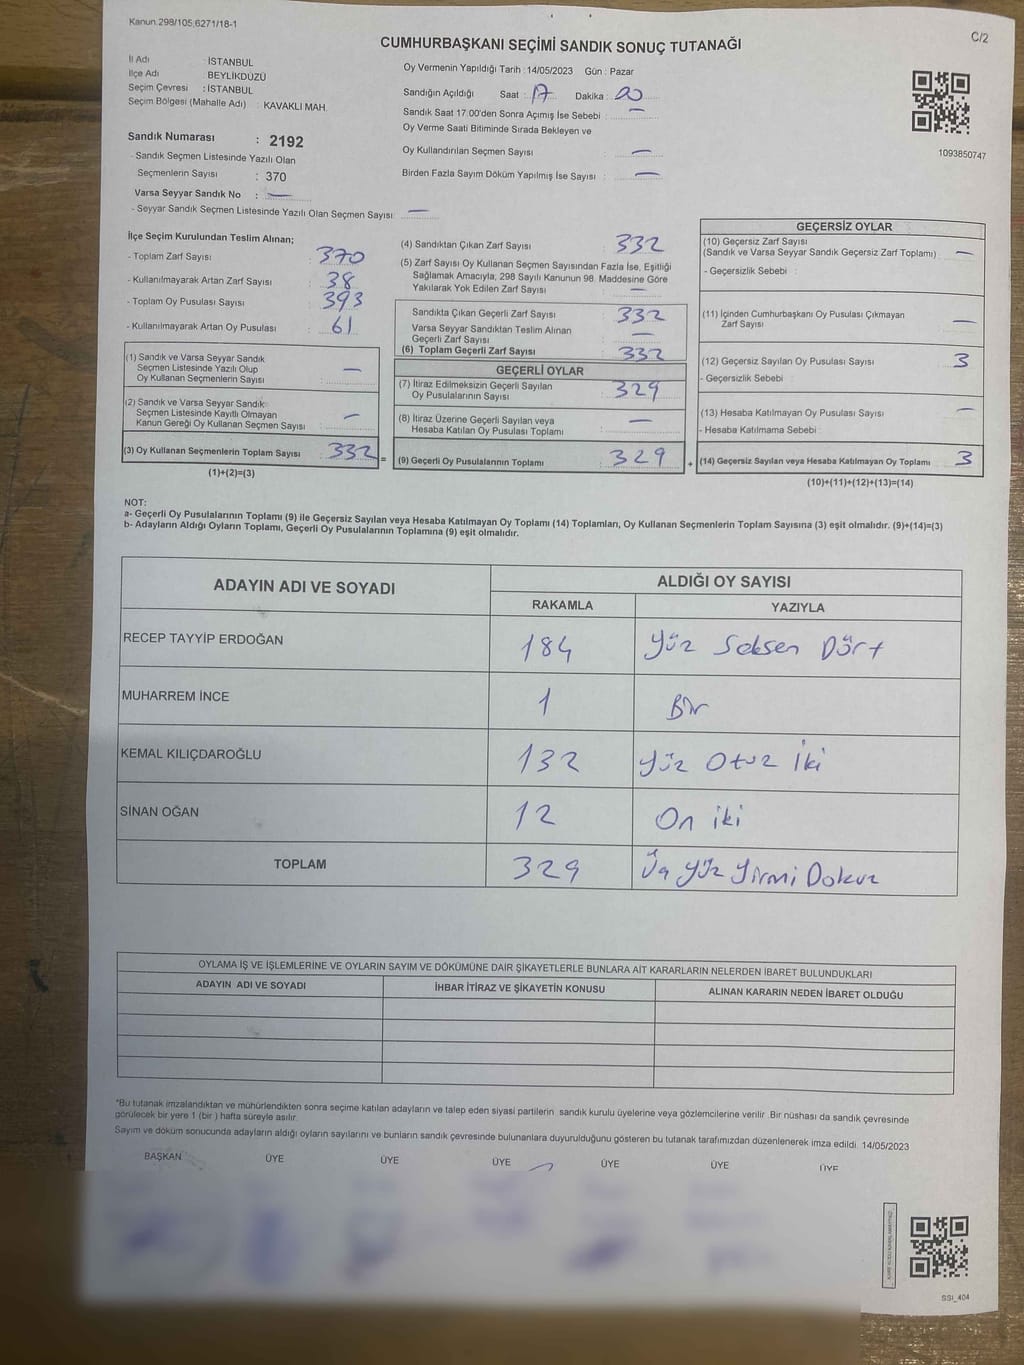 Kanun.298/105,6271/18-1
C/2
CUMHURBAŞKANI SEÇİMİ SANDIK SONUÇ TUTANAĞI
İl Adı : İSTANBUL
İlçe Adı : BEYLİKDÜZÜ
Seçim Çevresi : İSTANBUL
Seçim Bölgesi (Mahalle Adı) : KAVAKLI MAH.
Oy Vermenin Yapıldığı Tarih : 14/05/2023 Gün : Pazar
Sandığın Açıldığı Saat : 17 Dakika : 00
Sandık Saat 17:00'den Sonra Açımış İse Sebebi : —
Oy Verme Saati Bitiminde Sırada Bekleyen ve
Oy Kullandırılan Seçmen Sayısı : —
Birden Fazla Sayım Döküm Yapılmış İse Sayısı : —
1093850747
Sandık Numarası : 2192
- Sandık Seçmen Listesinde Yazılı Olan
Seçmenlerin Sayısı : 370
Varsa Seyyar Sandık No : —
- Seyyar Sandık Seçmen Listesinde Yazılı Olan Seçmen Sayısı: —
İlçe Seçim Kurulundan Teslim Alınan;
- Toplam Zarf Sayısı : 370
- Kullanılmayarak Artan Zarf Sayısı : 38
- Toplam Oy Pusulası Sayısı : 393
- Kullanılmayarak Artan Oy Pusulası : 61
(1) Sandık ve Varsa Seyyar Sandık
Seçmen Listesinde Yazılı Olup
Oy Kullanan Seçmenlerin Sayısı : —
(2) Sandık ve Varsa Seyyar Sandık
Seçmen Listesinde Kayıtlı Olmayan
Kanun Gereği Oy Kullanan Seçmen Sayısı : —
(3) Oy Kullanan Seçmenlerin Toplam Sayısı : 332 =
(1)+(2)=(3)
(4) Sandıktan Çıkan Zarf Sayısı : 332
(5) Zarf Sayısı Oy Kullanan Seçmen Sayısından Fazla İse, Eşitliği
Sağlamak Amacıyla, 298 Sayılı Kanunun 98. Maddesine Göre
Yakılarak Yok Edilen Zarf Sayısı : —
Sandıkta Çıkan Geçerli Zarf Sayısı : 332
Varsa Seyyar Sandıktan Teslim Alınan
Geçerli Zarf Sayısı : —
(6) Toplam Geçerli Zarf Sayısı : 332
GEÇERLİ OYLAR
(7) İtiraz Edilmeksizin Geçerli Sayılan
Oy Pusulalarının Sayısı : 329
(8) İtiraz Üzerine Geçerli Sayılan veya
Hesaba Katılan Oy Pusulası Toplamı : —
(9) Geçerli Oy Pusulalarının Toplamı : 329 +
GEÇERSİZ OYLAR
(10) Geçersiz Zarf Sayısı
(Sandık ve Varsa Seyyar Sandık Geçersiz Zarf Toplamı) : —
- Geçersizlik Sebebi :
(11) İçinden Cumhurbaşkanı Oy Pusulası Çıkmayan
Zarf Sayısı : —
(12) Geçersiz Sayılan Oy Pusulası Sayısı : 3
- Geçersizlik Sebebi :
(13) Hesaba Katılmayan Oy Pusulası Sayısı : —
- Hesaba Katılmama Sebebi :
(14) Geçersiz Sayılan veya Hesaba Katılmayan Oy Toplamı : 3
(10)+(11)+(12)+(13)=(14)
NOT:
a- Geçerli Oy Pusulalarının Toplamı (9) ile Geçersiz Sayılan veya Hesaba Katılmayan Oy Toplamı (14) Toplamları, Oy Kullanan Seçmenlerin Toplam Sayısına (3) eşit olmalıdır. (9)+(14)=(3)
b- Adayların Aldığı Oyların Toplamı, Geçerli Oy Pusulalarının Toplamına (9) eşit olmalıdır.
ADAYIN ADI VE SOYADI
ALDIĞI OY SAYISI
RAKAMLA YAZIYLA
RECEP TAYYİP ERDOĞAN 184 Yüz Seksen Dört
MUHARREM İNCE 1 Bir
KEMAL KILIÇDAROĞLU 132 Yüz Otuz İki
SİNAN OĞAN 12 On iki
TOPLAM 329 Üç Yüz Yirmi Dokuz
OYLAMA İŞ VE İŞLEMLERİNE VE OYLARIN SAYIM VE DÖKÜMÜNE DAİR ŞİKAYETLERLE BUNLARA AİT KARARLARIN NELERDEN İBARET BULUNDUKLARI
ADAYIN ADI VE SOYADI İHBAR İTİRAZ VE ŞİKAYETİN KONUSU ALINAN KARARIN NEDEN İBARET OLDUĞU
*Bu tutanak imzalandıktan ve mühürlendikten sonra seçime katılan adayların ve talep eden siyasi partilerin sandık kurulu üyelerine veya gözlemcilerine verilir. Bir nüshası da sandık çevresinde
görülecek bir yere 1 (bir ) hafta süreyle asılır.
Sayım ve döküm sonucunda adayların aldığı oyların sayılarını ve bunların sandık çevresinde bulunanlara duyurulduğunu gösteren bu tutanak tarafımızdan düzenlenerek imza edildi. 14/05/2023
BAŞKAN ÜYE ÜYE ÜYE ÜYE ÜYE ÜYE
SSI_404